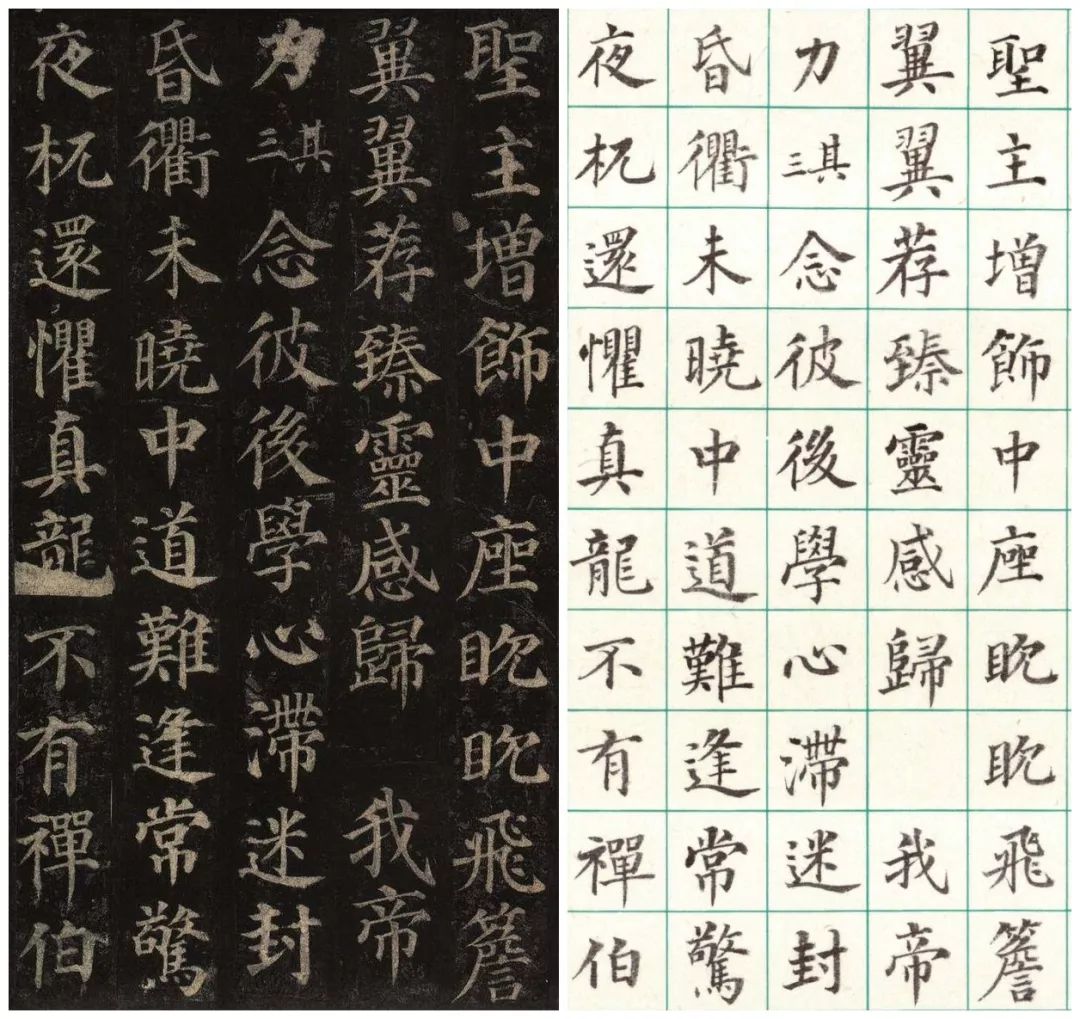 聖主增飾中座眈眈飛簷
翼翼荐臻靈感歸　我帝
力其三念彼後學心滯迷封
昏衢未曉中道難逢常驚
夜杌還懼真龍不有禪伯
聖主增飾中座眈眈飛簷
翼翼荐臻靈感歸　我帝
力其三念彼後學心滯迷封
昏衢未曉中道難逢常驚
夜杌還懼真龍不有禪伯